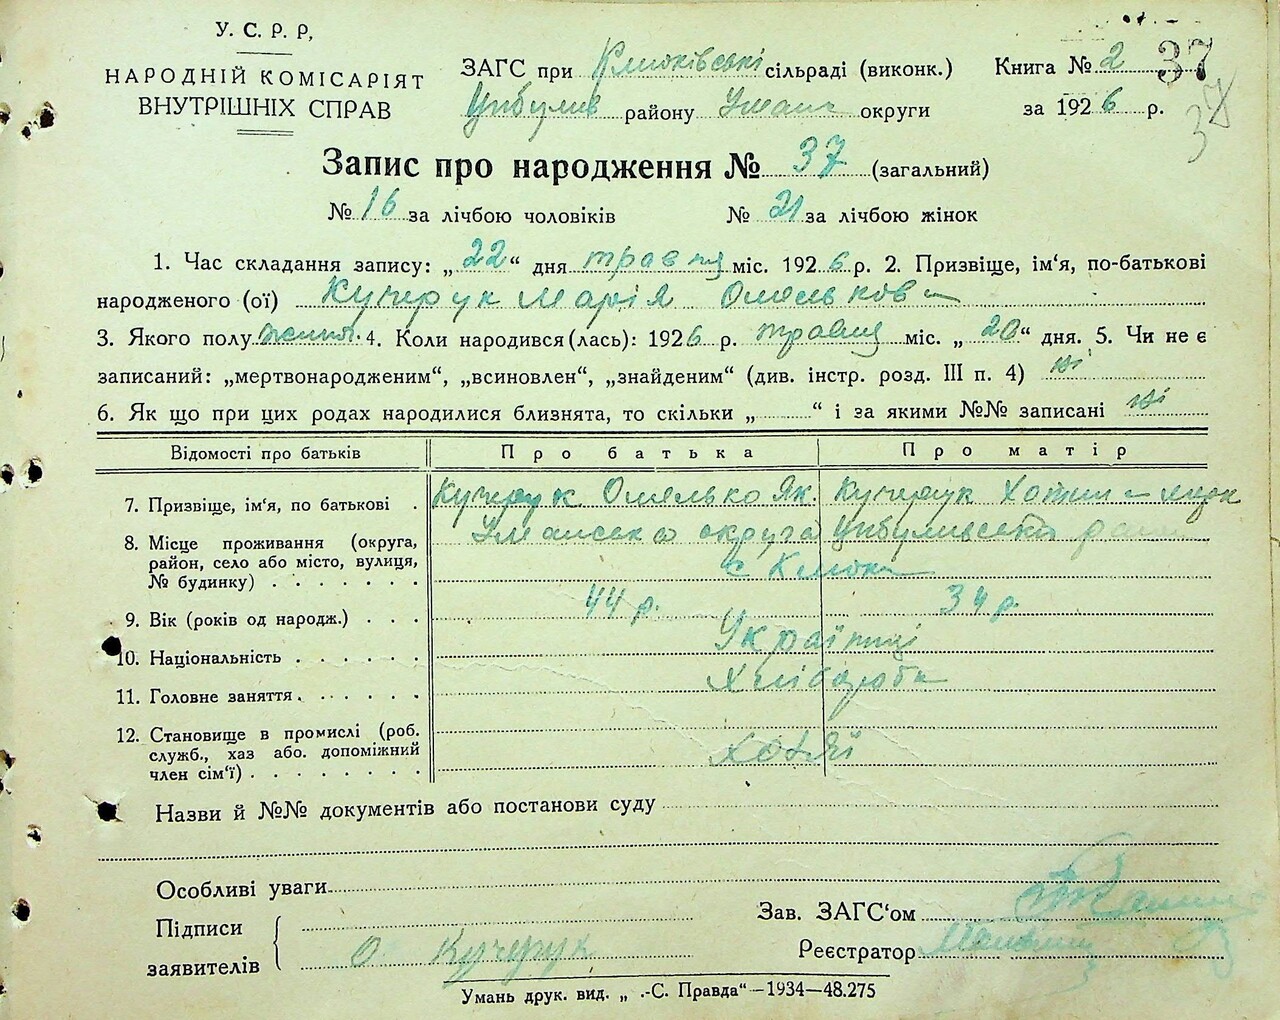 У. С. Р. Р,
НАРОДНІЙ КОМІСАРІЯТ
ВНУТРІШНІХ СПРАВ
ЗАГС при Клюківські сільраді (виконк.) Книга № 2 37
Цибулів району Уман округи за 1926 р. 37
Запис про народження № 37 (загальний)
№ 16 за лічбою чоловіків № 21 за лічбою жінок
1. Час складання запису: „22“ дня травня міс. 1926 р. 2. Призвіще, ім‘я, по-батькові
народженого (ої) Кучерук Марія Омельков
3. Якого полу жіноч. 4. Коли народився (лась): 1926 р. травня міс. „20“ дня. 5. Чи не є
записаний: „мертвонародженим“, „всиновлен“, „знайденим“ (див. інстр. розд. III п. 4) ні
6. Як що при цих родах народилися близнята, то скільки „ “ і за якими №№ записані ні
Відомості про батьків Про батька Про матір
7. Призвіще, ім‘я, по батькові . Кучерук Омелько Як. Кучерук
8. Місце проживання (округа, район, село або місто, вулиця, № будинку) Уманська округа Цибулівський
с
9. Вік (років од народж.) . . . 44 р. 34 р.
10. Національність . . . . . . Українці
11. Головне заняття . . . . . . Хлібороби
12. Становище в промислі (роб. служб., хаз або. допоміжний член сім‘ї) . . . . . . . . Хозяї
Назви й №№ документів або постанови суду
Особливі уваги
Підписи Зав. ЗАГС‘ом
заявителів О. Кучерук Реєстратор
Умань друк. вид. „ .-С. Правда“—1934—48.275